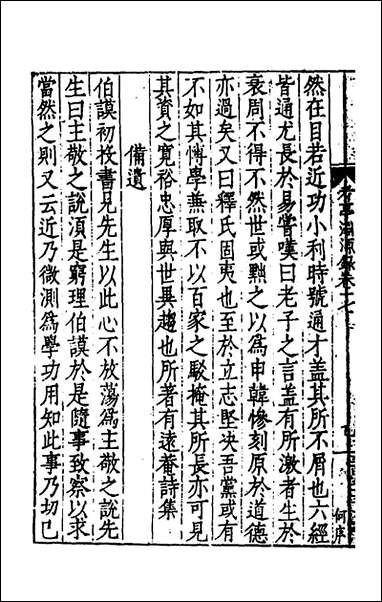 然在目若近功小利時號通才蓋其所不屑也六經
皆通尤長於易嘗嘆曰老子之言蓋有所激者生於
衰周不得不然世或黜之以為申韓慘刻原於道德
亦過矣又曰釋氏固夷也至於立志堅決吾黨或有
不如其愽學無取不以百家之駁掩其所長亦可見
其資之寬裕忠厚與世異趨也所著有遠菴詩集
備遺
伯謨初投書見先生以此心不放蕩為主敬之說先
生曰主敬之說湏是窮理伯謨於是隨事致察以求
當然之則又云近乃微測為學功用知此事乃切己
考亭淵源錄卷十七
何序